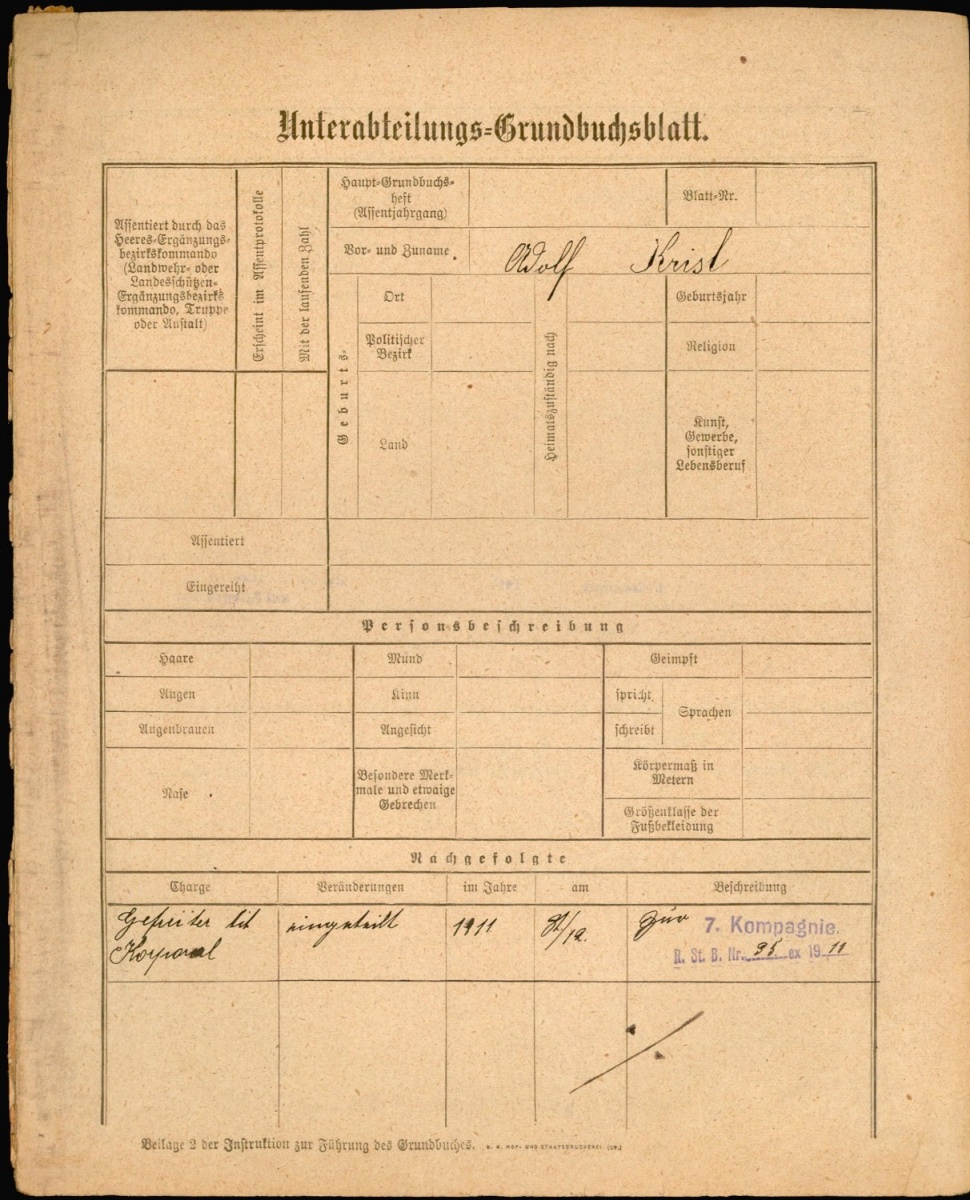 Unterabteilungs-Grundbuchsblatt.
Assentiert durch das
Heeres-Ergänzungs-
bezirkskommando
(Landwehr- oder
Landesschützen-
Ergänzungsbezirks
kommando, Truppe
oder Anstalt)
Erscheint im Assentprotokolle
Mit der laufenden Zahl
Haupt-Grundbuchs-
heft
(Assentjahrgang)
Blatt-Nr.
Vor- und Zuname
Adolf Krist
Geburts-
Ort
Politischer
Bezirk
Land
Heimatszuständig nach
Geburtsjahr
Religion
Kunst,
Gewerbe,
sonstiger
Lebensberuf
Assentiert
Eingereiht
Personsbeschreibung
Haare
Mund
Geimpft
Augen
Kinn
spricht
Sprachen
Augenbrauen
Angesicht
schreibt
Nase
Besondere Merk-
male und etwaige
Gebrechen
Körpermaß in
Metern
Größenklasse der
Fußbekleidung
Nachgefolgte
Charge
Veränderungen
im Jahre
am
Beschreibung
Gefreiter tit
Korporal
eingeteilt
1911
/12.
zur
7. Kompagnie.
R. St. B. Nr. 95 ex 1911
Beilage 2 der Instruktion zur Führung des Grundbuches.
K. K. HOF- UND STAATSDRUCKEREI